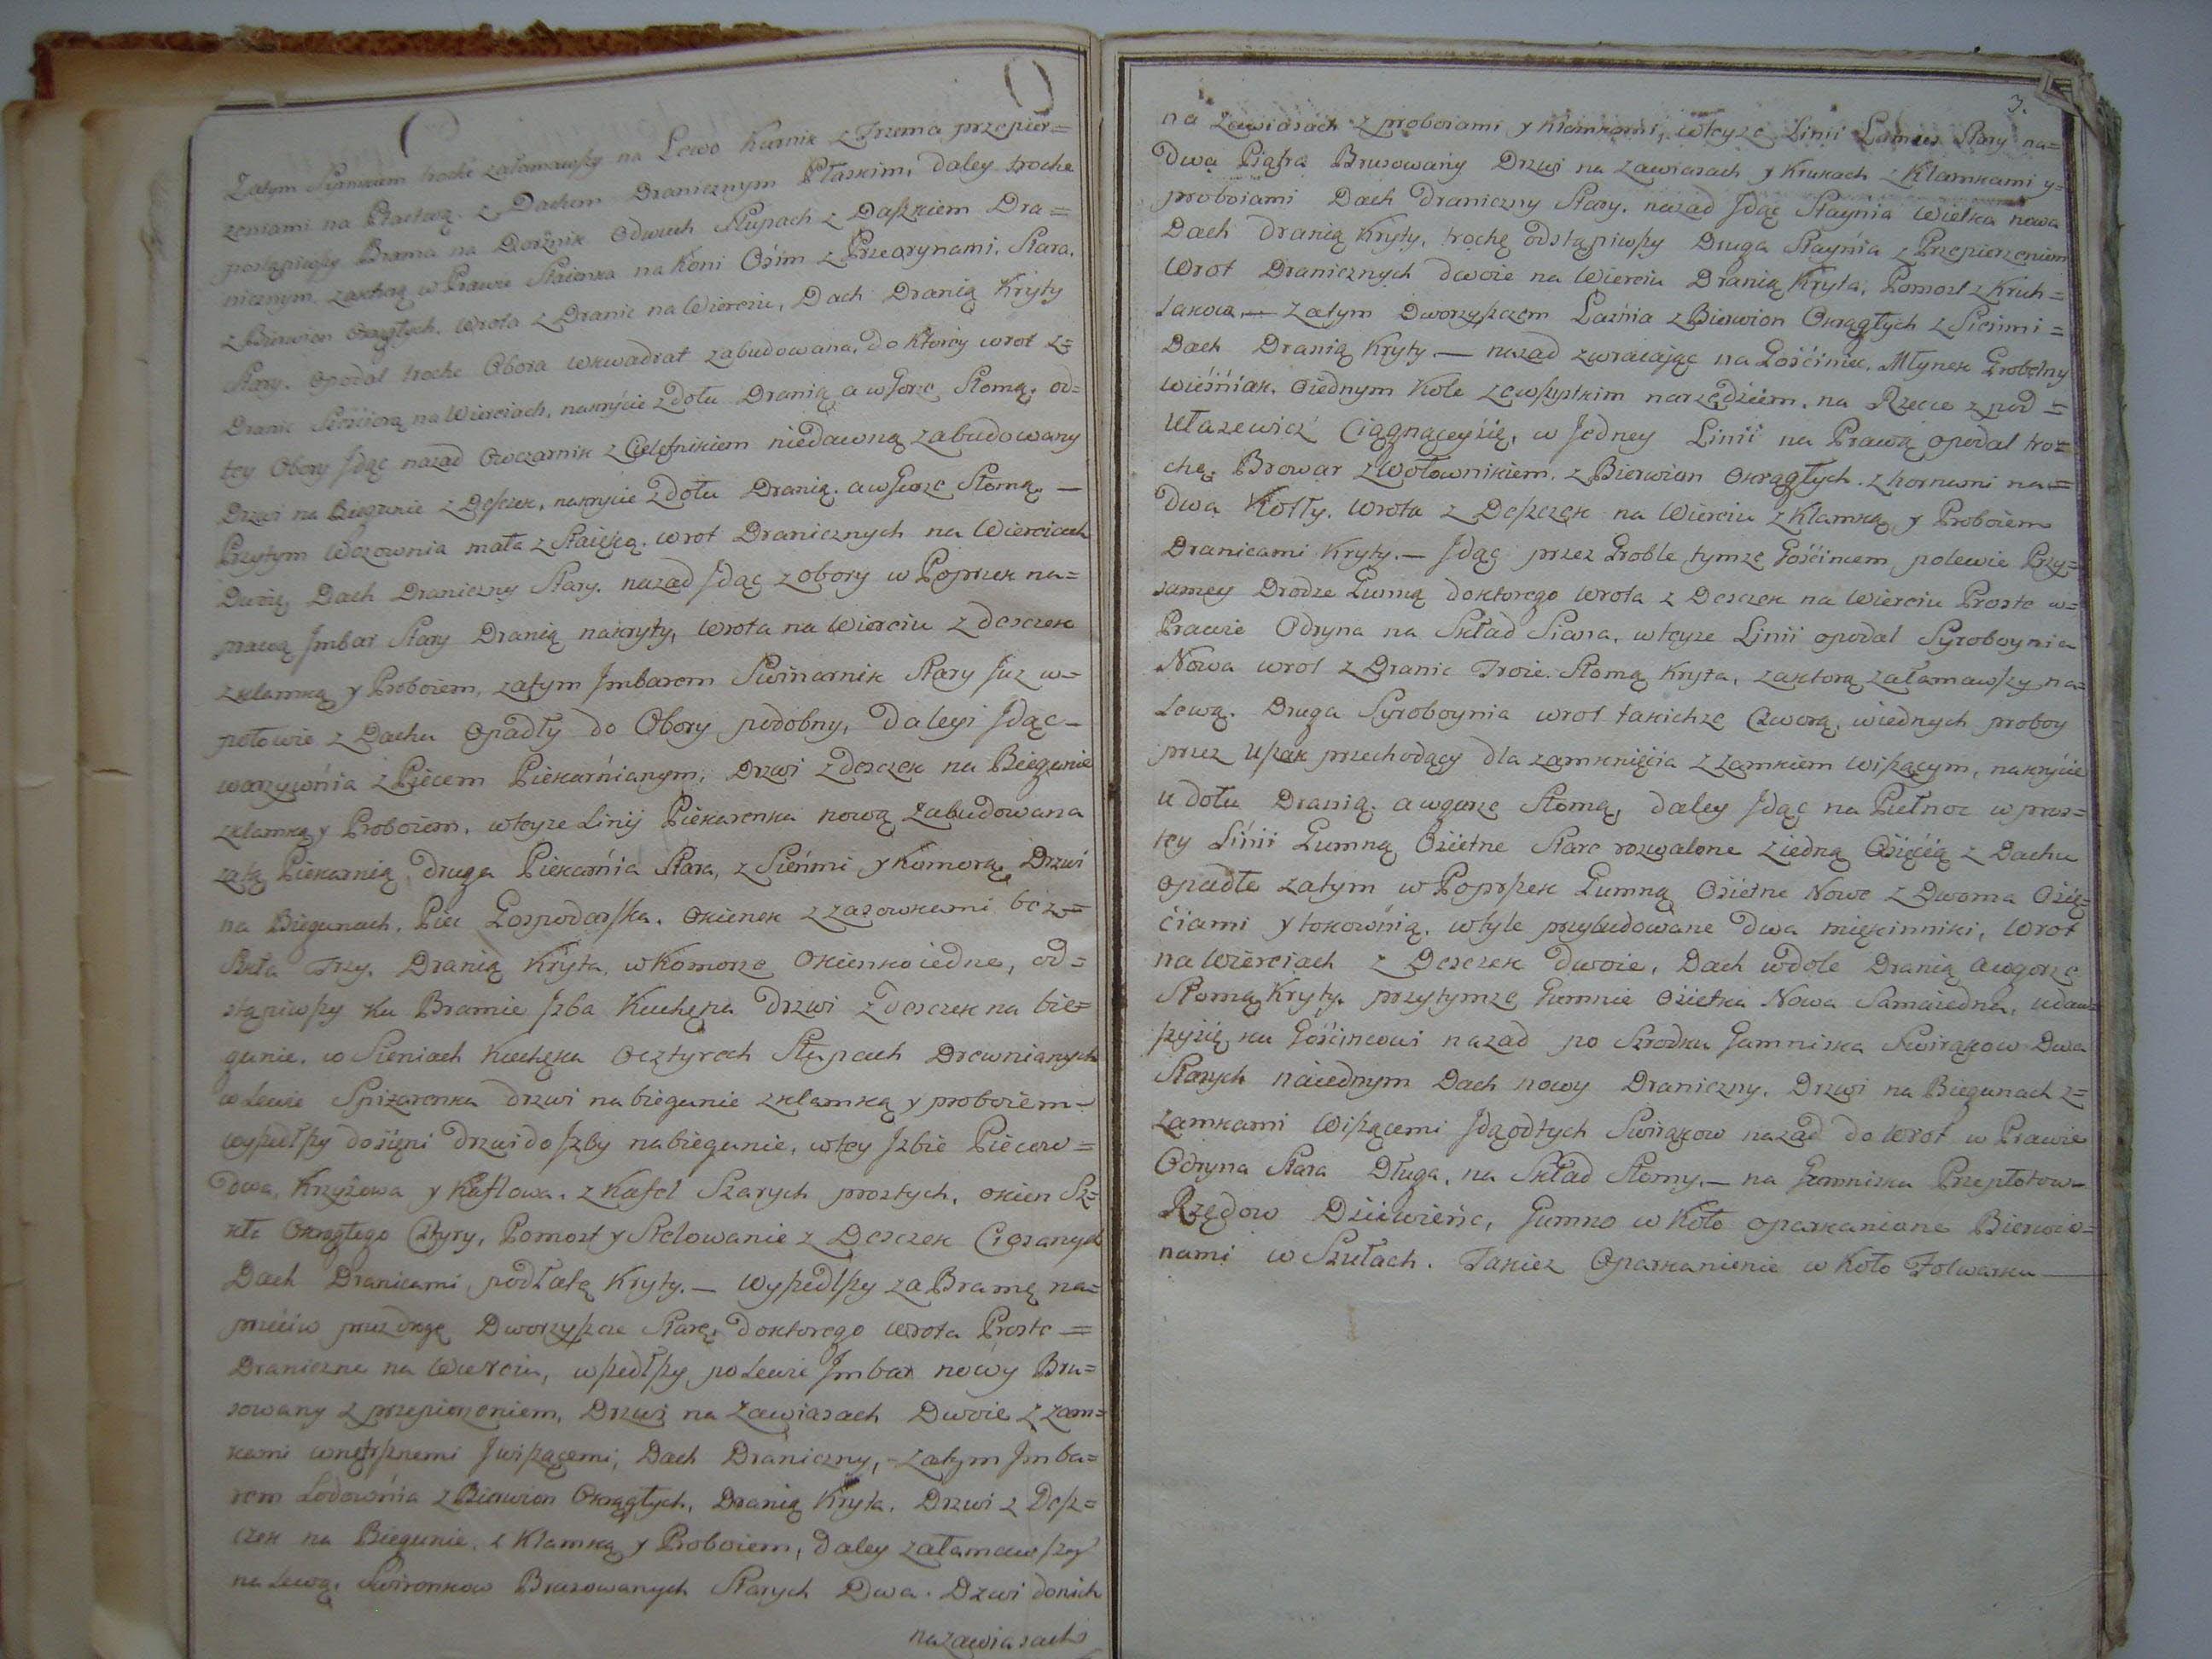 Zatym Murnikiem troche załamawszy na Lewo Kurnik z Trzema przepier=
zeniami na Ptactwą. z Dachem Dranicznym Płaskim, daley troche
postąpiwszy Brama na Dorżnik Odwuch Słupach z Daszkiem Dra=
nicznym zaktorą w Prawie Staienka na Koni Ośim z Przeorynami. Stara.
z Bierwion okrągłych. Wrota z Dranic na Wierciu, Dach Dranią Kryty
Stary. opodal troche Obora wkwadrat zabudowana, do Ktorey wrot z=
Dranic Sześciorą na Wierciach, nakrycie z dołu Dranią a wGorze Słomą. od=
tey Obory Jdąc nazad Owczarnik z Cielętnikiem niedawną zabudowany
Drzwi na Biegunie z Deszczek, nakrycie z dołu Dranią. a wGorze Słomą. —
Przytym Wozownia mała z Staieką. wrot Dranicznych na Wierciach
Dwoię Dach Draniczny Stary. nazad Jdąc z obory w Poprzek na=
prawą Jmbar Stary Dranią nakryty, Wrota na Wierciu z desczek
zklamką y Proboiem, zatym Jmbarem Swinarnik Stary Juz w=
połowie z Dachu Opadły do Obory podobny, Daleyi Jdąc=
warzywńia z Piecem Piekarńianym, Drzwi z desczek na Biegunie
zklamką y Proboiem, wteyze Linij Piekarenka nową Zabudowana
zatą Piekarnią druga Piekarńia Stara, z Sieńmi y Komorą, Drzwi
na Biegunach, Piec Gospodarska. okienek z zasowkami bez=
Szkła Trzy. Dranią Kryta, wKomorze Okienko iedne, od=
stąpiwszy ku Bramie Jzba Kuchęna Drzwi z desczek na bie=
gunie. w Sieniach Kuchęka Ocztyrech Słupach Drewnianych
w Lewie Spizarenka drzwi na biegunie zklamką y proboiem=
wyszedłszy dosięni drzwi do Jzby nabiegunie, wtey Jzbie Piecow=
dwa, Krzyżowa y Kaflowa. z Kafel Szarych prostych, okien Sz=
kła Okrągłego Cztyry, Pomost y Stelowanie z Desczek Ciosanych
Dach Dranicami podŁatę Kryty. — Wyszedłszy za Bramę na=
przeciw przez drogę Dworzyszcze Stare, doktorego wrota Proste =
Draniczne na Wierciu, wszedłszy poLewie Jmbar nowy Bru=
sowany z przepierzeniem, Drzwi na zawiasach Dwoie z zam=
kami wnętrznemi Jwiszącemi, Dach Draniczny, - zatym Jmba=
rem Lodownia z Bierwion Okrągłych, Dranią Kryta. Drzwi z Desz=
czek na Biegunie z Klamką y Proboiem, daley załamawszy
na Lewą, Swironkow Brusowanych Starych Dwa. Drzwi donich
nazawiasach
3.
na Zawiasach z proboiami y klamkami, wteyze Linii Lamus Stary na=
dwa Piątra Brusowany Drzwi na zawiasach y Krukach z Klamkami y=
proboiami Dach draniczny Stary. nazad Jdąc Staynia Wielka nowa
Dach dranią Kryty, trochę odstąpiwszy Druga Stayńia z Przepierzeniem
Wrot Dranicznych dwoie na Wierciu Dranią Kryta, Pomost z Kruh=
lakow — zatym Dworzyszczem Łaźnia z Bierwion Okrągłych z Sieńmi=
Dach Dranią Kryty — nazad zwracając na Gośćiniec. Młynek Grobelny
wieśńiak. oiednym Kole zewszystkim narzędźiem, na Rzece z pod=
Ułazewicź Ciągnąceysię, w Jedney Linii na Prawą opodal tro=
chę. Browar z Wołownikiem, z Bierwion okrągłych. z hornami na=
dwa Kotły. Wrota z Deszczek na Wierciu z Klamką y Proboiem
Dranicami Kryty. — Jdąc przez Groble tymze Gośćincem polewie Przy=
samey Drodze Gumną doktorego wrota z Desczek na Wierciu Proste w=
Prawie Odryna na Skład Siana, wteyze Linii opodal Syroboynia
Nowa wrot z Dranic Troie. Słomą Kryta, zaktorą załamawszy na=
Lewą. Druga Syroboynia wrot takichze Czworą, wiednych proboy
przez Uszak przechodzący dla zamknięćia z zamkiem wiszącym, nakryćie
u dołu Dranią. a wgurze Słomą, daley Jdąc na Pułnoc w pros=
tey Linii Gumną Ośietne Stare rozwalone ziedną Ośięćią z Dachu
opadłe zatym w Poprszek Gumną Ośietne Nowe z Dwoma Ośię=
ćiami y tokownią, wtyle przybudowane dwa miękinniki, wrot
na Wierciach z Desczek dwoie, Dach wdole Dranią awgorze
Słomą Kryty. przytymze Gumnie Ośietka Nowa Samaiedna, udaw=
szysię ku Gośćincowi nazad po Szrodku Gumniska Swirąkow Dwa
Starych naiednym Dach nowy Draniczny. Drzwi na Biegunach z=
zamkami Wiszącemi Jdąodtych Swirąkow nazad do Wrot w Prawie
Odryna Stara Długa, na Skład Słomy. — na Gumniska Przepłotow=
Rzędow Dźiewieńc, Gumno w Koło oparkaniane Bierwio=
nami w Szułach. Takiez Oparkanienie w Koło Folwarku —